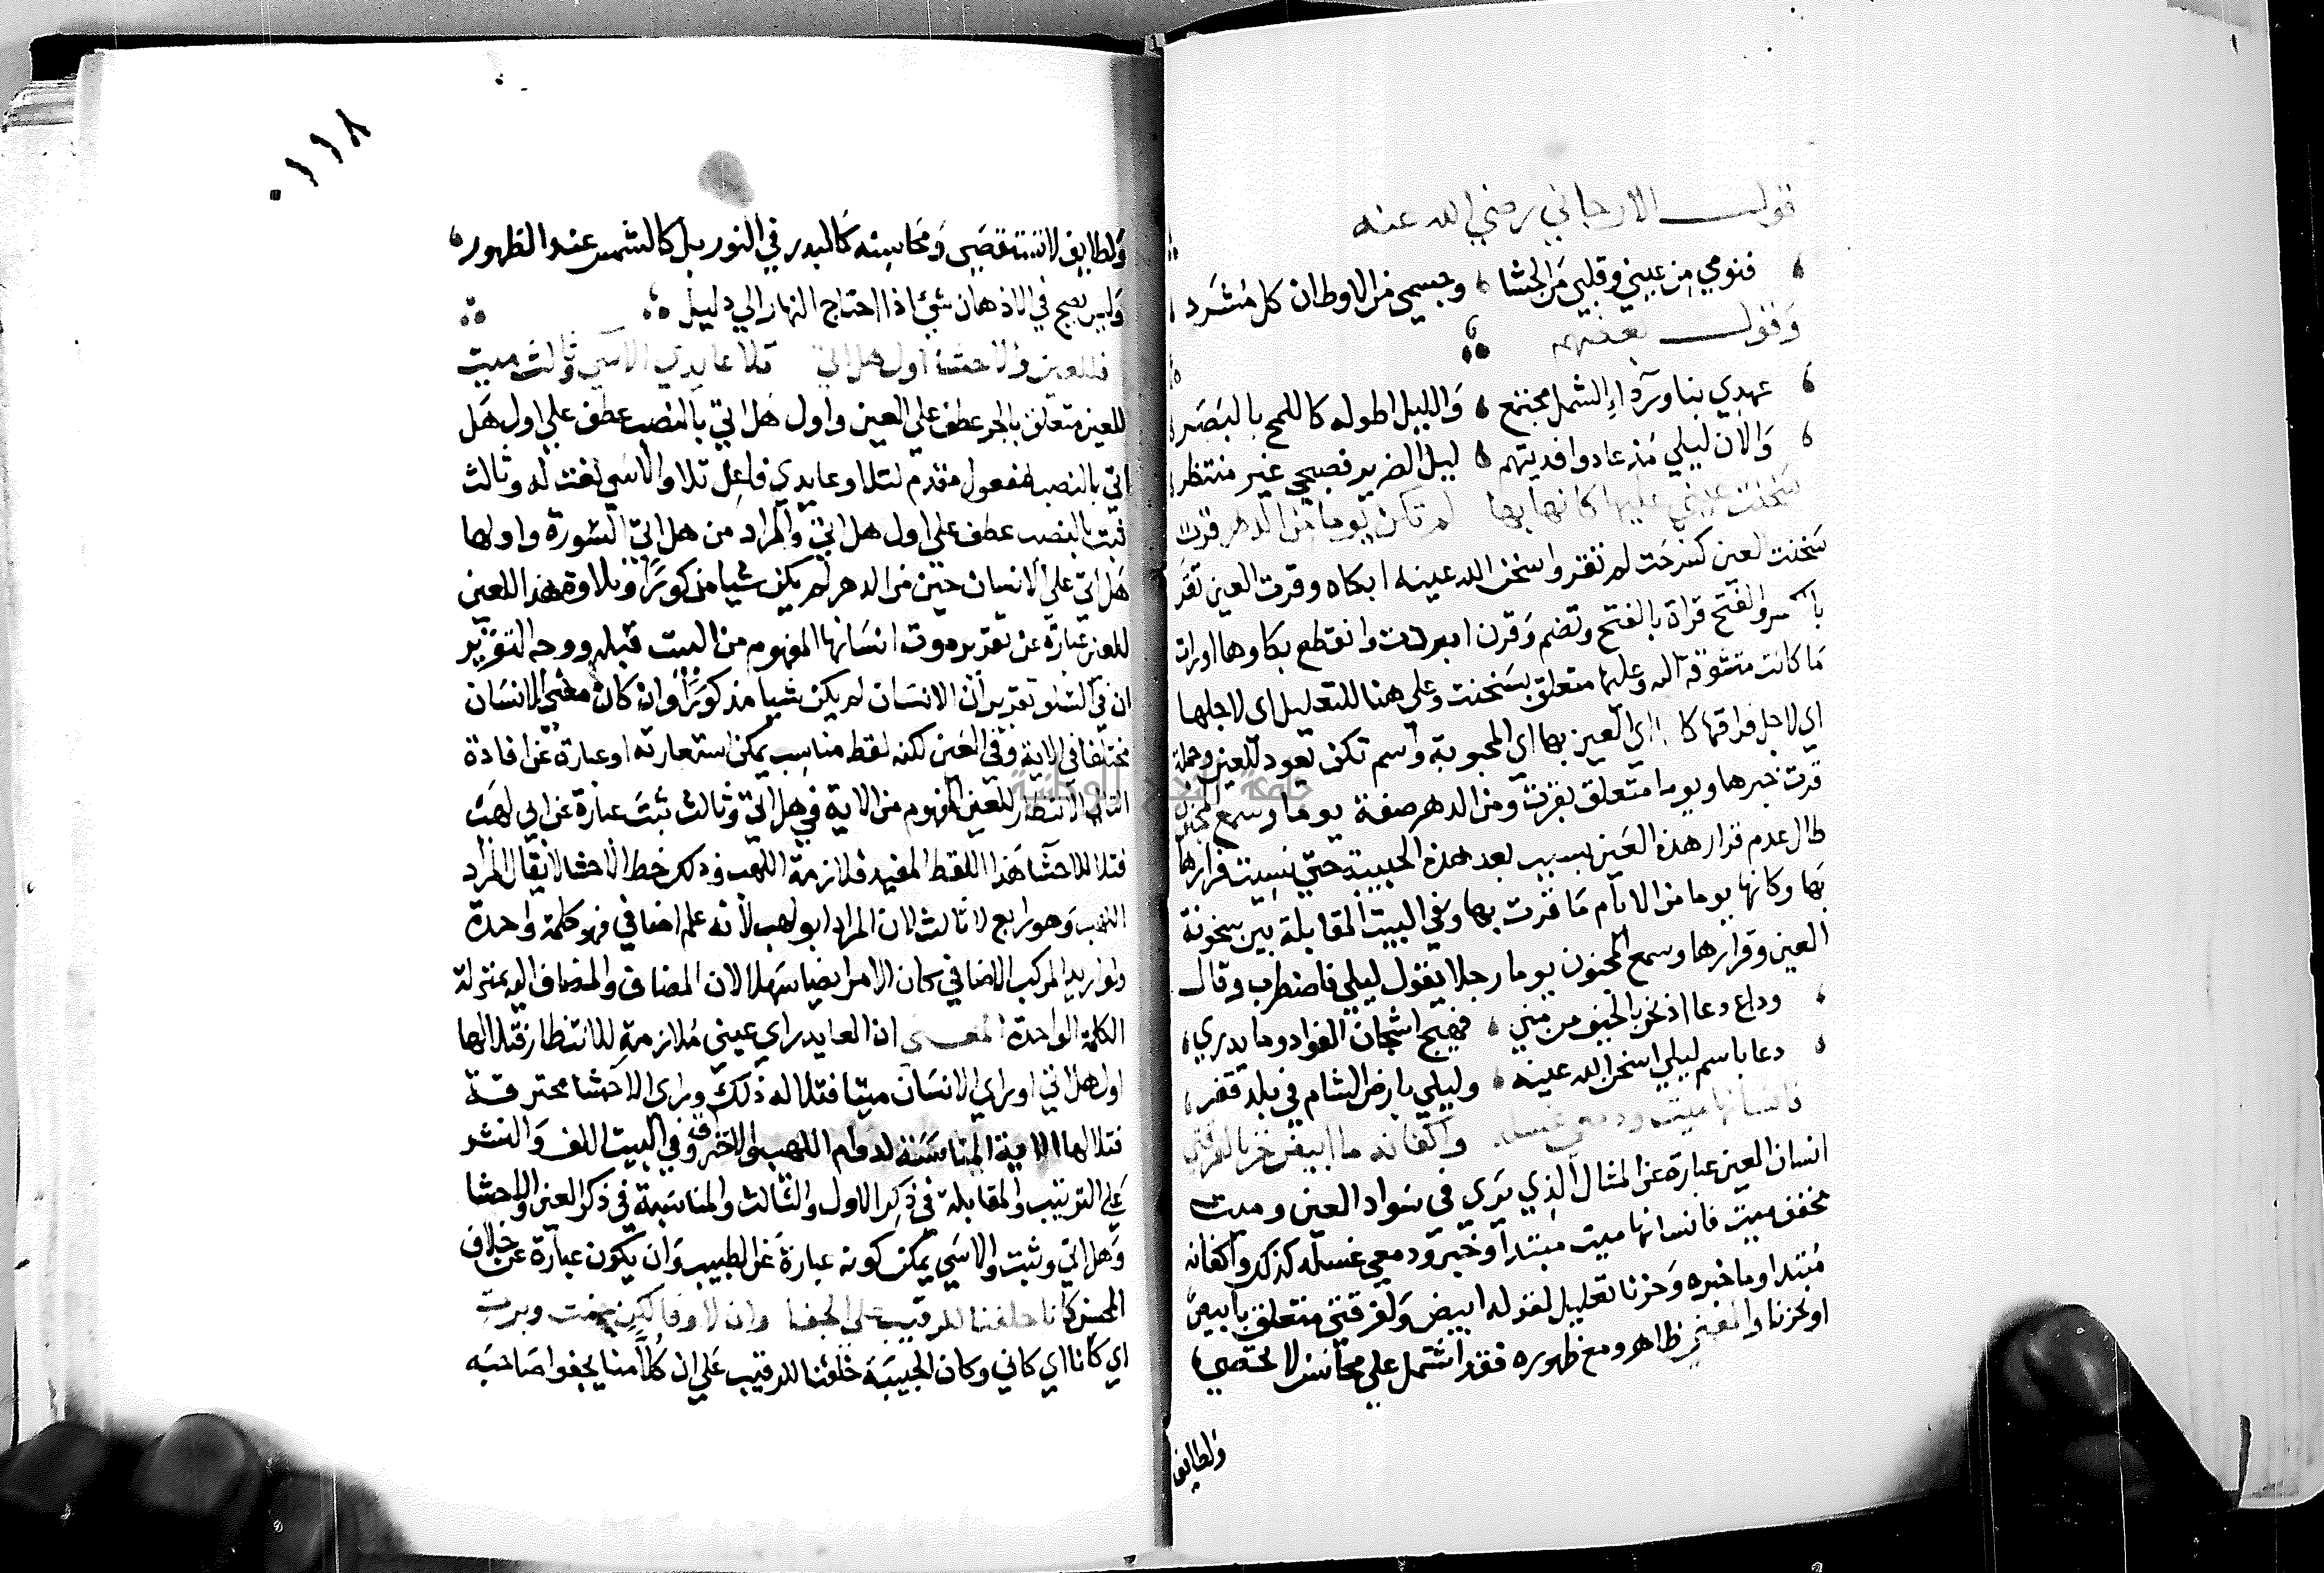 قول الارجاني رضي الله عنه
فنومي من عيني وقلبي من الحشا وجسمي من الاوطان كل مشرد
وقول بعضهم
عهدي بنا ورداء الشمل مجتمع والليل اطوله كاللمح بالبصر
والان ليلي مذ عادوا فديتهم ليل الضرير فصبحي غير منتظر
سخنت عيني عليها كانها بها لم تكن يوما من الدهر قرت
سخنت العين كفرحت لم تقر واسخن الله عينه ابكاه وقرت العين تقر
بالكسر والفتح قراة بالفتح وتضم وقرن ابردت وانقطع بكاوها او رات
ما كانت متشوقة اليه وعليها متعلق بسخنت وعلى هنا للتعليل اي لاجلها
اي لاجل فراقها كانها اي العين بها اي المحبوبة واسم تكن يعود للعين وجملة
قرت خبرها ويوما متعلق بقرت ومن الدهر صفة يوما
طال عدم قرار هذه العين بسبب بعد هذه الحبيبة حتي نسيت قرارها
بها وكانها يوما من الايام ما قرت بها وفي البيت المقابلة بين سخونة
العين وقرارها وسمع المجنون يوما رجلا يقول ليلي فاضطرب وقال
وداع دعا اذ نحن بالخيف من مني فهيج اشجان الفواد وما يدري
دعا باسم ليلي اسخن الله عينه وليلي بارض الشام في بلد قفر
فانسانها ميت ودمعي غسله واكفانه ما ابيض حزنا لفرقتي
انسان العين عبارة عن المثال الذي يري في سواد العين وميت
مخفف ميت فانسانها ميت مبتدا وخبر ودمعي غسله كذلك واكفانه
مبتدا وما خبره وحزنا تعليل لقوله ابيض ولفرقتي متعلق بابيض
او بحزنا والمعني ظاهر ومع ظهوره فقد اشتمل علي محاسن لا تحصي
ولطايف
١١٨
ولطايف لا تستقصي ومحاسنه كالبدر في النور بل كالشمس عند الظهور
وليس يصح في الاذهان شئ اذا احتاج النهار الي دليل
فللعين والاحشا اول هل اتي تلا عايدي الاسي وثالث تبت
للعين متعلق بالجر عطف علي العين واول هل اتي بالنصب عطف علي اول هل
اتي بالنصب مفعول مقدم لتلا وعايدي فاعل تلا والاسي نعت له وثالث
تبت بالنصب عطف علي اول هل اتي والمراد من هل اتي السورة واولها
هل اتي علي الانسان حين من الدهر لم يكن شيا مذكورا وتلاوة هذا للعين
للعين عبارة عن تقدير موت انسانها المفهوم من البيت قبله ووجه التقرير
ان في التلو تقرير ان الانسان لم يكن شيا مذكورا وان كان معني الانسان
مختلفا في الاية وفي العين لكنه لفظ مناسب يمكن استعارته او عبارة عن افادة
التاني الانتظار للعين المفهوم من الاية في هل اتي وثالث تبت عبارة عن ابي لهب
فتلا للاحشا هذا اللفظ المفيد ملازمة اللهب وذلك حظ الاحشا لا يقال المراد
اللهب وهو رابع لا ثالث لان المراد ابو لهب لانه علم اضافي فهو كلمة واحدة
ولو اريد المركب الاضافي كان الامر ايضا سهلا لان المضاف والمضاف اليه بمنزلة
الكلمة الواحدة المعني ان العايد راي عيني ملازمة للانتظار فتلا لها
اول هل اتي او راي الانسان ميتا فتلا له ذلك وراي الاحشا محترقة
فتلا لها الاية المناسبة لدوام اللهب والاحتراق وفي البيت اللف والنشر
علي الترتيب والمقابلة في ذكر الاول والثالث والمناسبة في ذكر العين والاحشا
وهل اتي وتبت والاسي يمكن كونه عبارة عن الطبيب وان يكون عبارة عن خلاف
المحسن كانا حلفنا للرقيب علي الجفا وان لا وفا لكن حنثت وبرت
اي كانا اي كاني وكان الحبيبة حلفنا للرقيب علي ان كلا منا يجفوا صاحبه